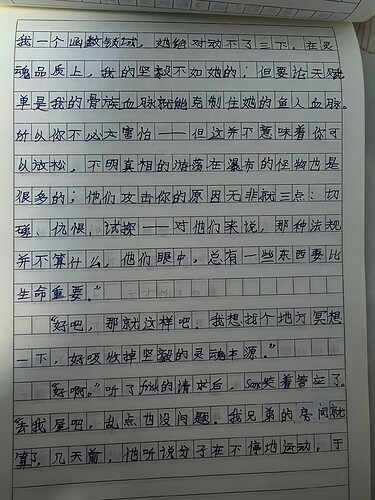 我一个函数领域，她绝对动不了三下。在灵
魂品质上，我的坚毅不如她的；但要论天赋，
单是我的骨族血脉就能克制住她的鱼人血脉。
所以你不必太害怕——但这并不意味着你可
以放松，不明真相的游荡在瀑布的怪物也是
很多的；他们攻击你的原因无非就三点：切
磋、仇恨、试探——对他们来说，那种法规
并不算什么，他们眼中，总有一些东西要比
生命重要。”
“好吧，那就这样吧。我想找个地方冥想
一下，好吸收掉坚毅的灵魂本源。”
“好啊。”听了frisk的请求后，Sans笑着答应了。
“去我屋吧，乱点也没问题。我兄弟的房间就
算了，几天前，他听说分子在不停地运动，于